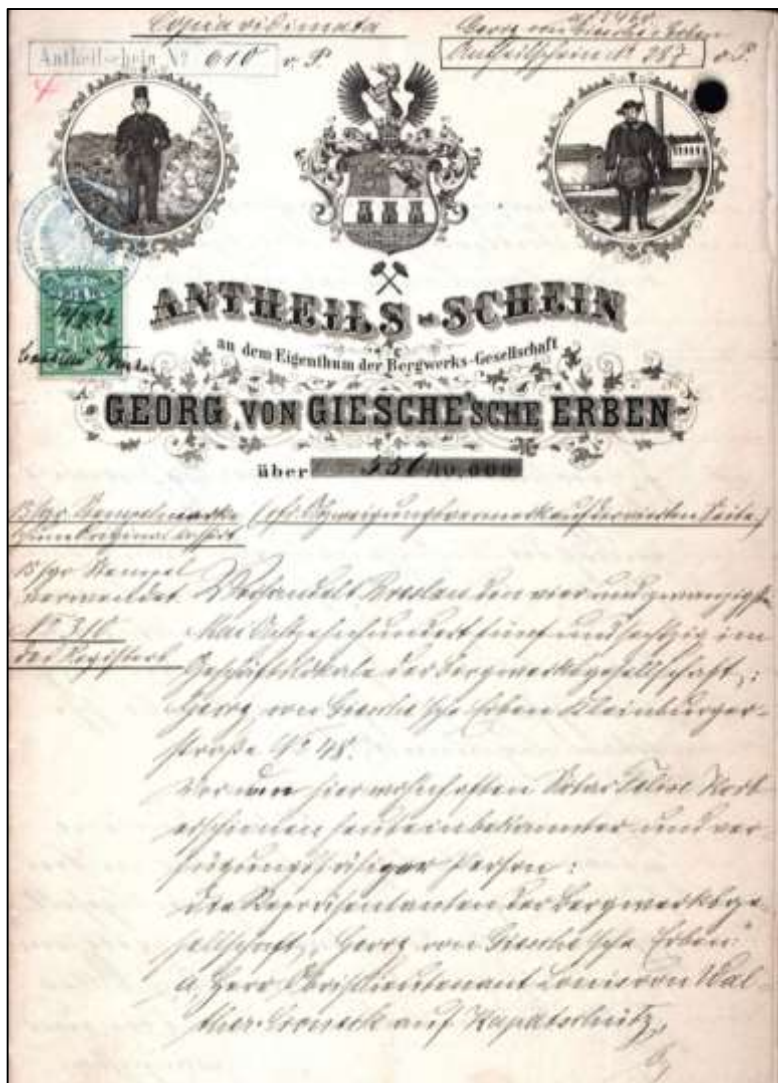 Copia vidimata
Georg von Giesche's Erben
Antheilschein No 610 v. P.
Antheilschein No 287 v. P.
ANTHEILS-SCHEIN
an dem Eigenthum der Bergwerks-Gesellschaft
GEORG VON GIESCHE'SCHE ERBEN
über 10,000
15 sgr Stempelmarke auf der vierten Seite)
zum Original cassirt
15 sgr Stempel
verwendet.
No 310
des Registers
Verhandelt Breslau den vier und zwanzigsten
Mai Achtzehnhundert fünf und sechszig im
Geschäftslokale der Bergwerksgesellschaft:
Georg von Giesche'sche Erben Kleinburger-
straße No 48.
Vor dem hier wohnhaften Notar
erschienen heute in bekannter und ver-
fügungsfähiger Person:
die Repräsentanten der Bergwerksge-
sellschaft „Georg von Giesche'sche Erben"
a, Herr Obristlieutenant Louis von Wal-
ther-Croneck auf Kapatschütz,